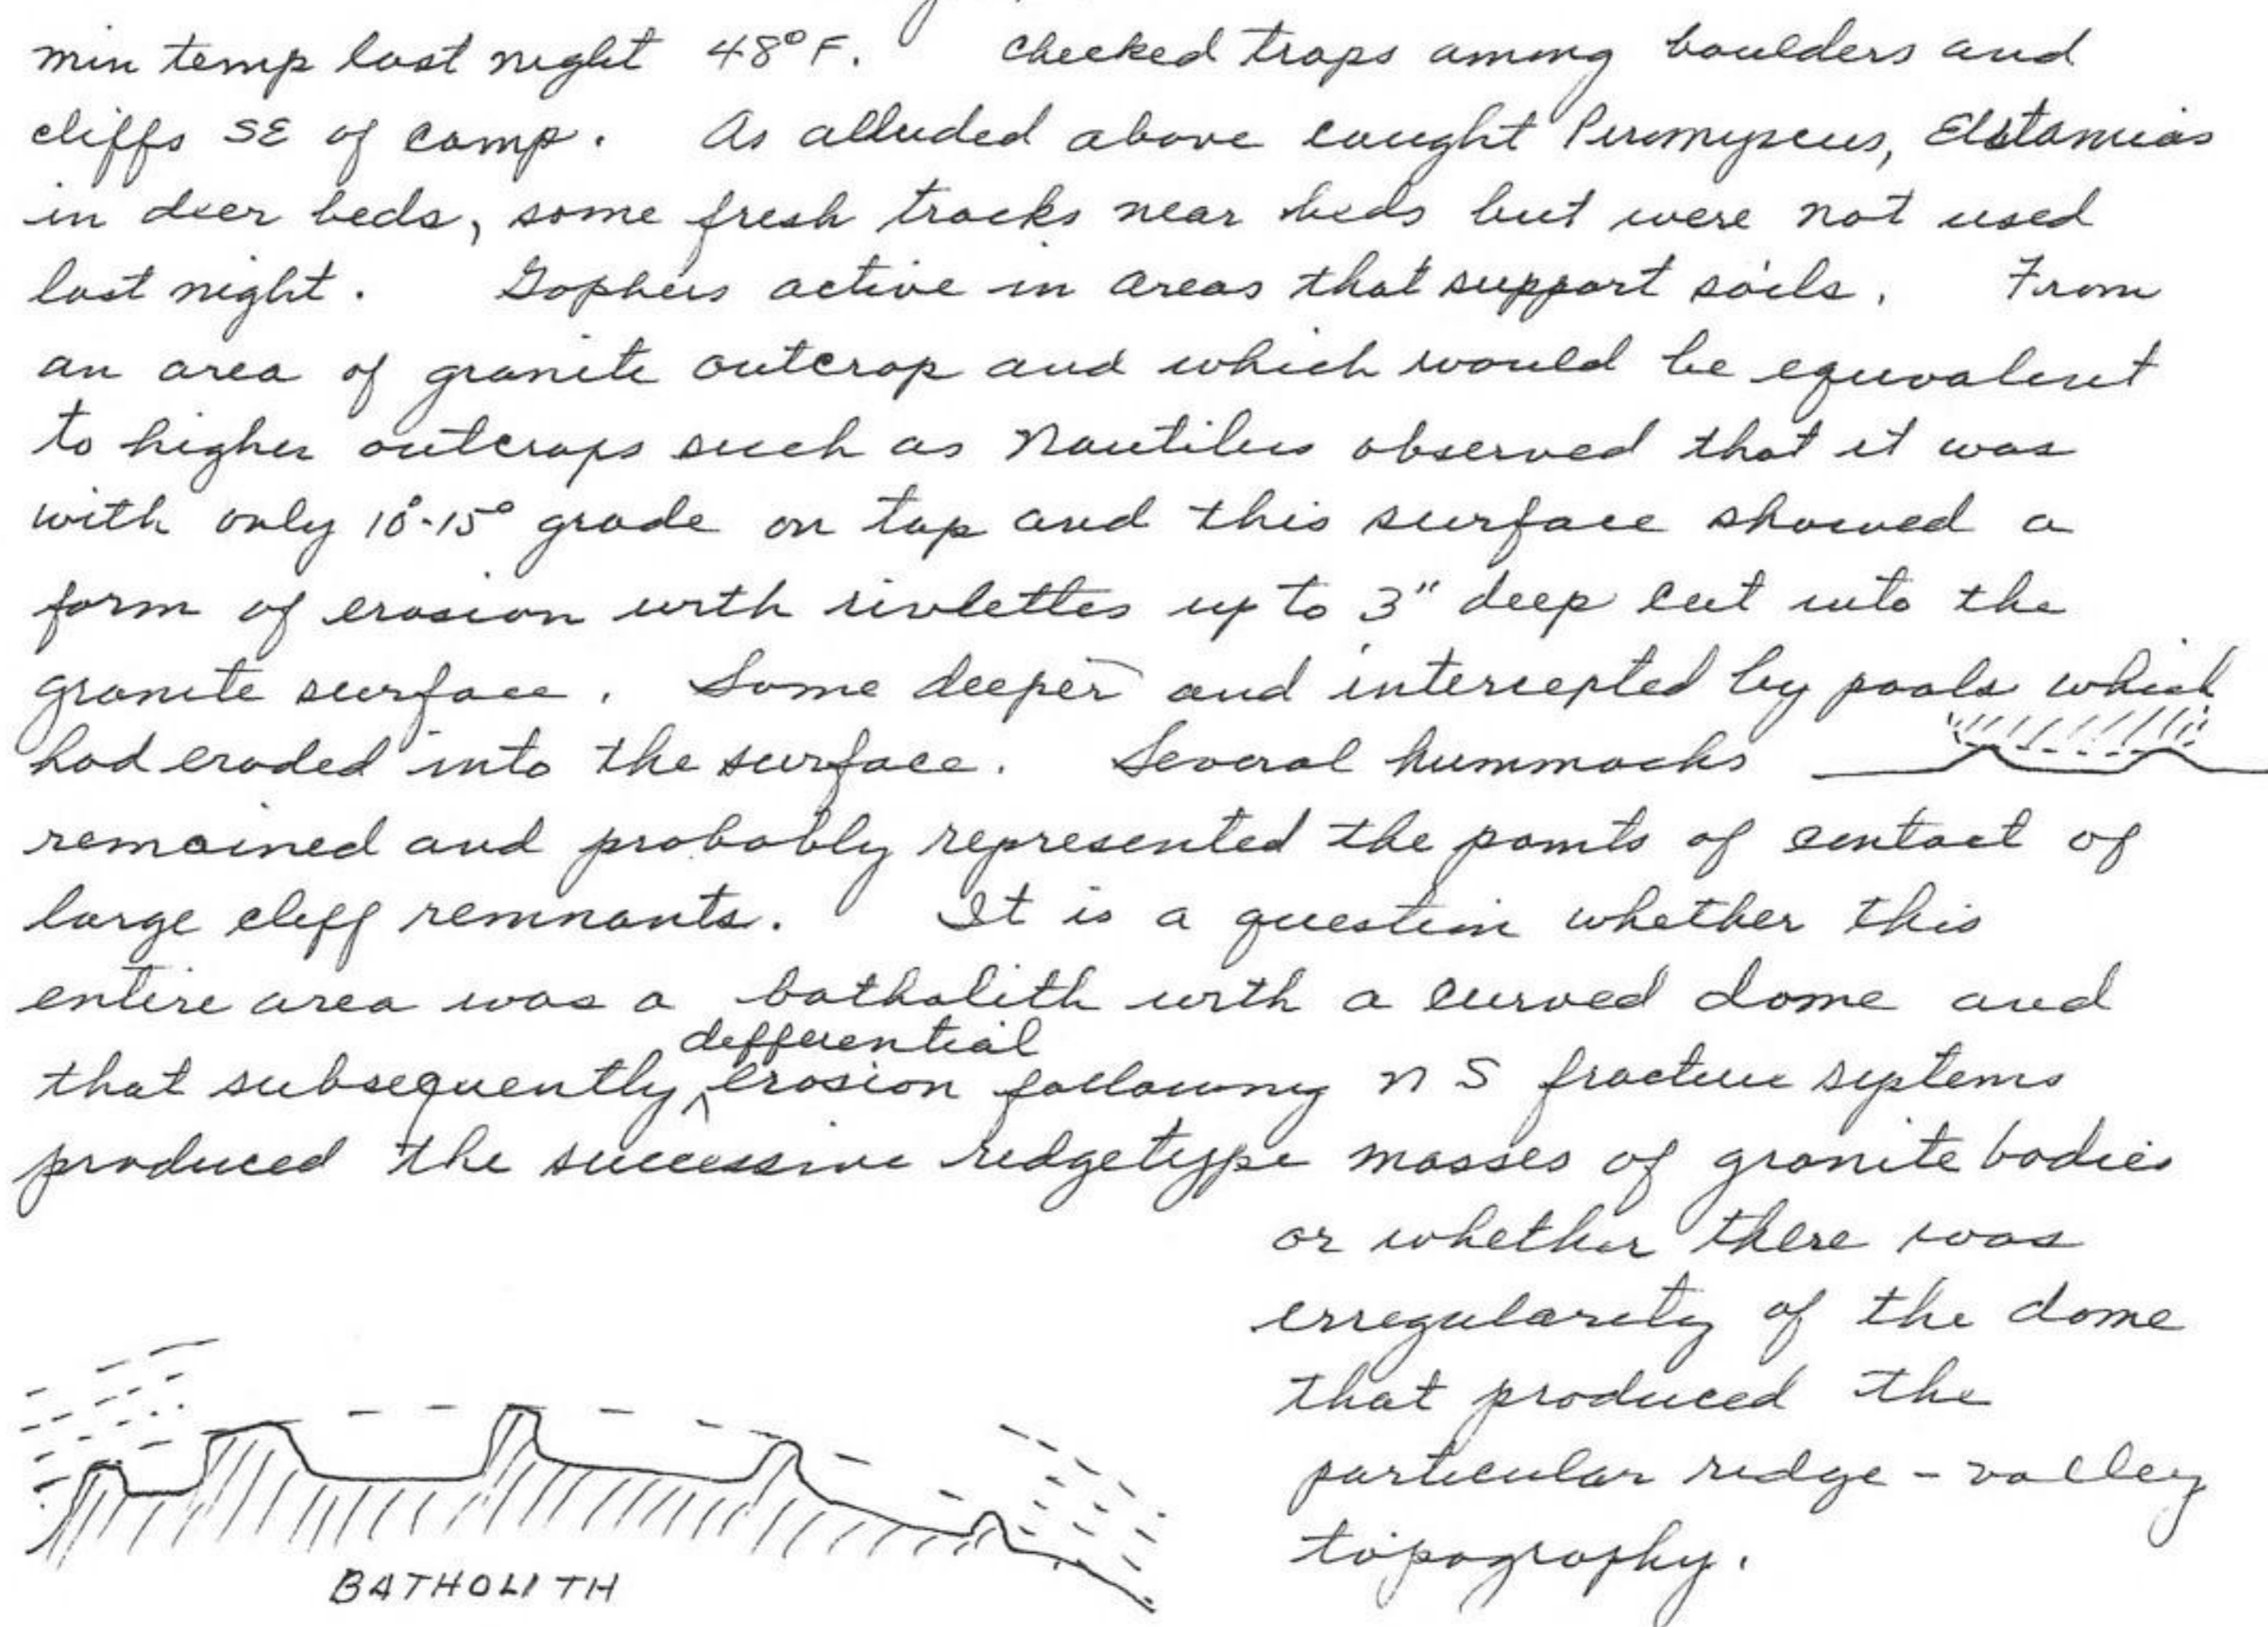 min temp last night 48°F. Checked traps among boulders and
cliffs SE of camp. As alluded above caught Peromyscus, Eutamias
in deer beds, some fresh tracks near beds but were not used
last night. Gophers active in areas that support soils. From
an area of granite outcrop and which would be equivalent
to higher outcrops such as Nautilus observed that it was
with only 10°-15° grade on top and this surface showed a
form of erosion with rivlettes up to 3" deep cut into the
granite surface. Some deeper and intercepted by pools which
had eroded into the surface. Several hummocks
remained and probably represented the points of contact of
large cliff remnants. It is a question whether this
entire area was a batholith with a curved dome and
differential
that subsequently erosion following N S fracture systems
produced the successive ridgetype masses of granite bodies
or whether there was
irregularity of the dome
that produced the
particular ridge - valley
topography.
BATHOLITH